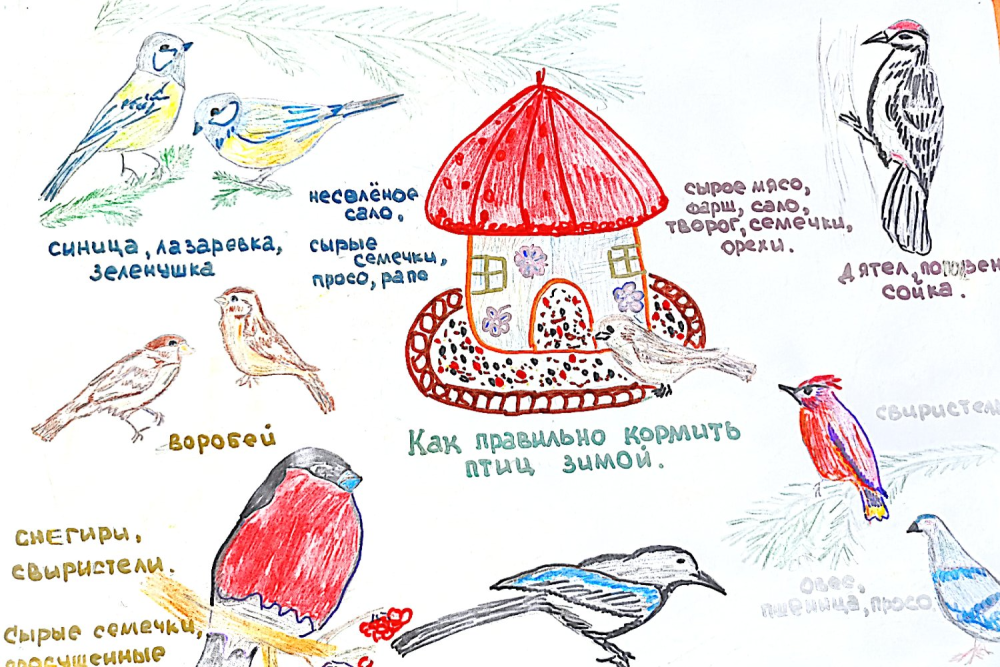 синица, лазаревка,
зеленушка
несолёное
сало,
сырые
семечки,
просо, рапс
сырое мясо,
фарш, сало,
творог, семечки,
орехи.
дятел,
сойка.
воробей
Как правильно кормить
птиц зимой.
свиристели
снегири,
свиристели.
Сырые семечки,
овес,
пшеница, просо